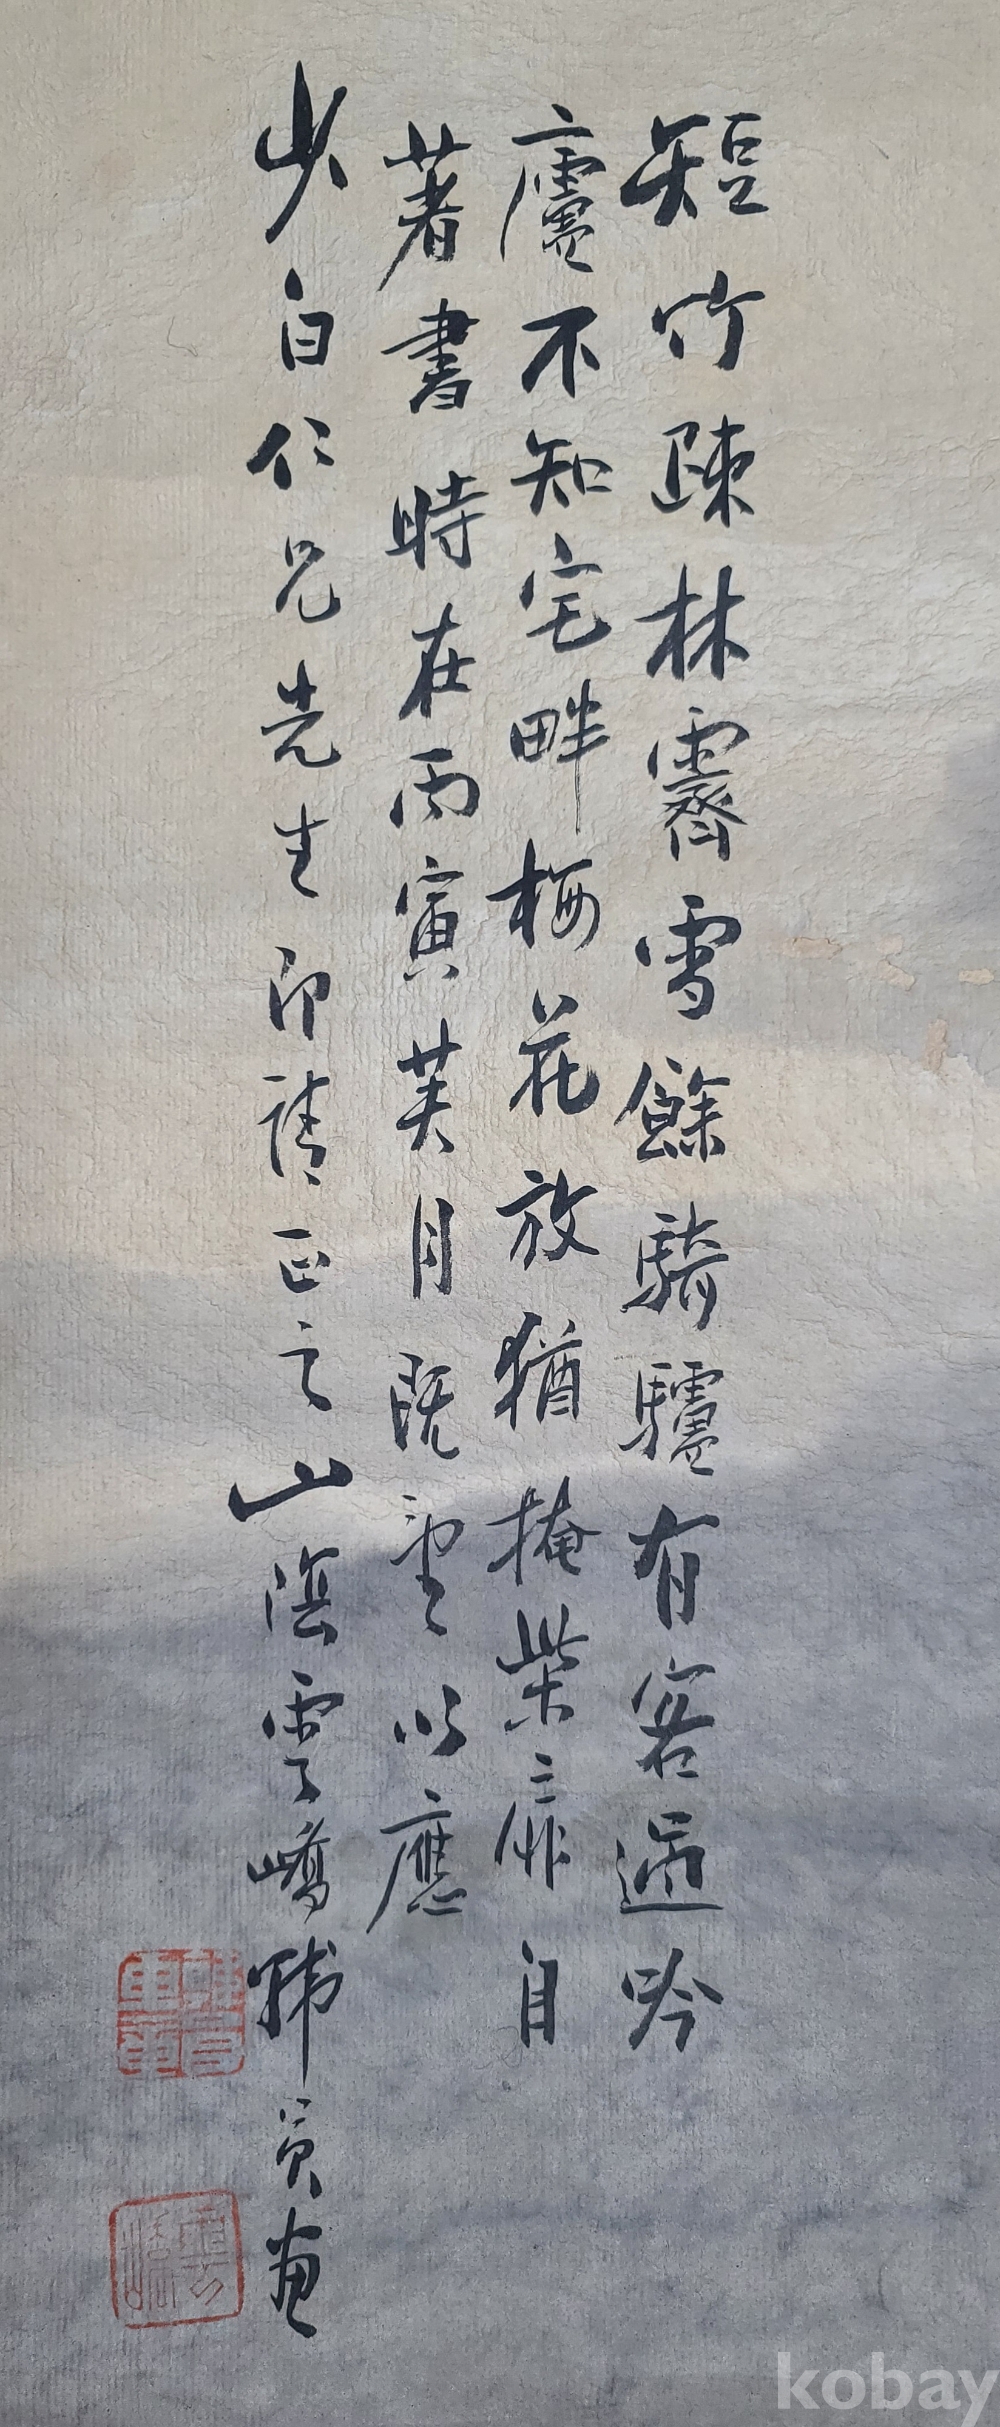 短竹疎林霽雪餘騎驢有客過吟
廬不知宅畔梅花放猶掩柴扉自
著書 時在丙寅芙月既望以應
少白仁兄先生 即請正之山陰雲嶠韩貢画
kobay